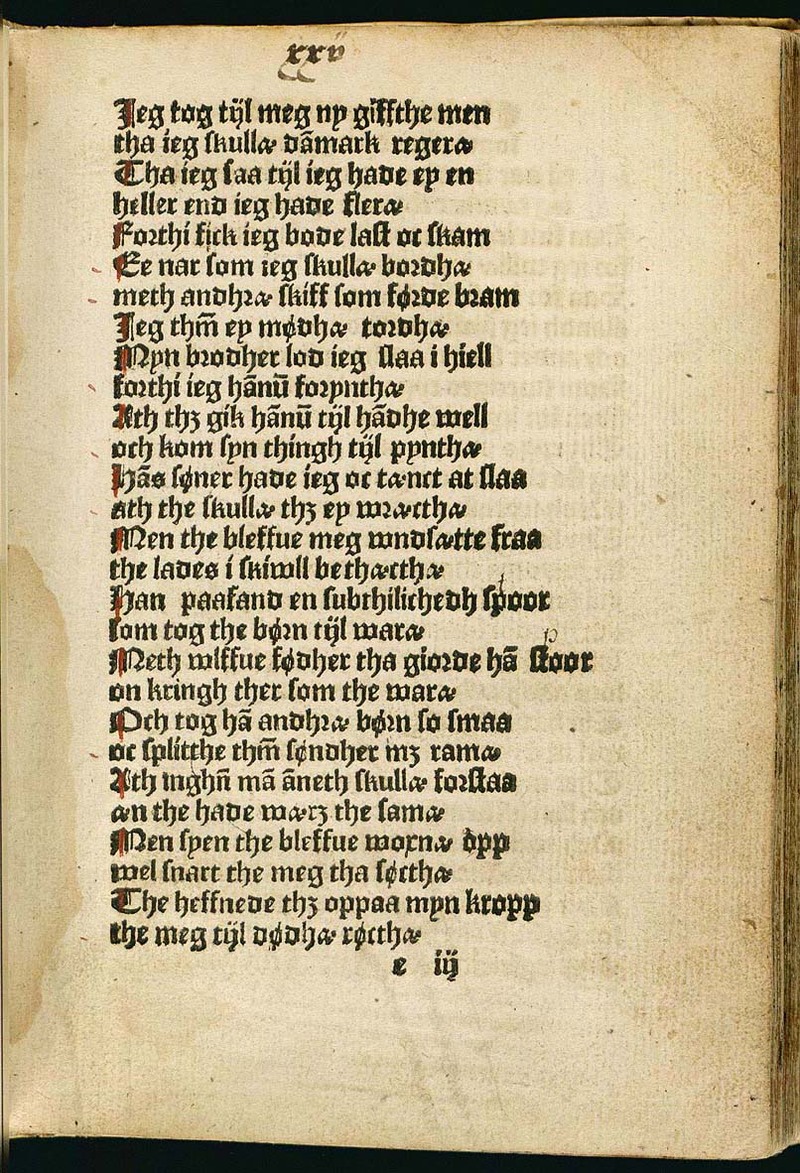 xxv
Jeg tog tijl meg ny giffthe men
tha ieg skullæ dāmark regeræ
Tha ieg saa tijl ieg hade ey en
heller end ieg hade fleræ
Forthi fick ieg bode last oc skam
Ee nar som ieg skullæ bordhæ
meth andhræ skiff som førde bram
Jeg thm̄ ey mødhæ tordhæ
Myn brodher lod ieg slaa i hiell
forthi ieg hānū forynthæ
Ath thꝫ gik hānū tijl hādhe well
och kom syn thingh tijl pynthæ
Hās søner hade ieg oc tænct at slaa
ath the skullæ thꝫ ey wræcthæ
Men the bleffue meg wndsætte fraa
the lades i skiwll bethæcthæ
Han paafand en subthilichedh spoor
som tog the børn tijl waræ
Meth wlffue fødher tha giorde hā stoor
on kringh ther som the waræ
Och tog hā andhræ børn so smaa
oc splitthe thm̄ søndher mꝫ ramæ
Ath inghn̄ mā āneth skullæ forstaa
æn the hade wærꝫ the samæ
Men syen the bleffue woxnæ opp
wel snart the meg tha søcthæ
The heffnede thꝫ oppaa myn kropp
the meg tijl dødhæ røcthæ
e iij